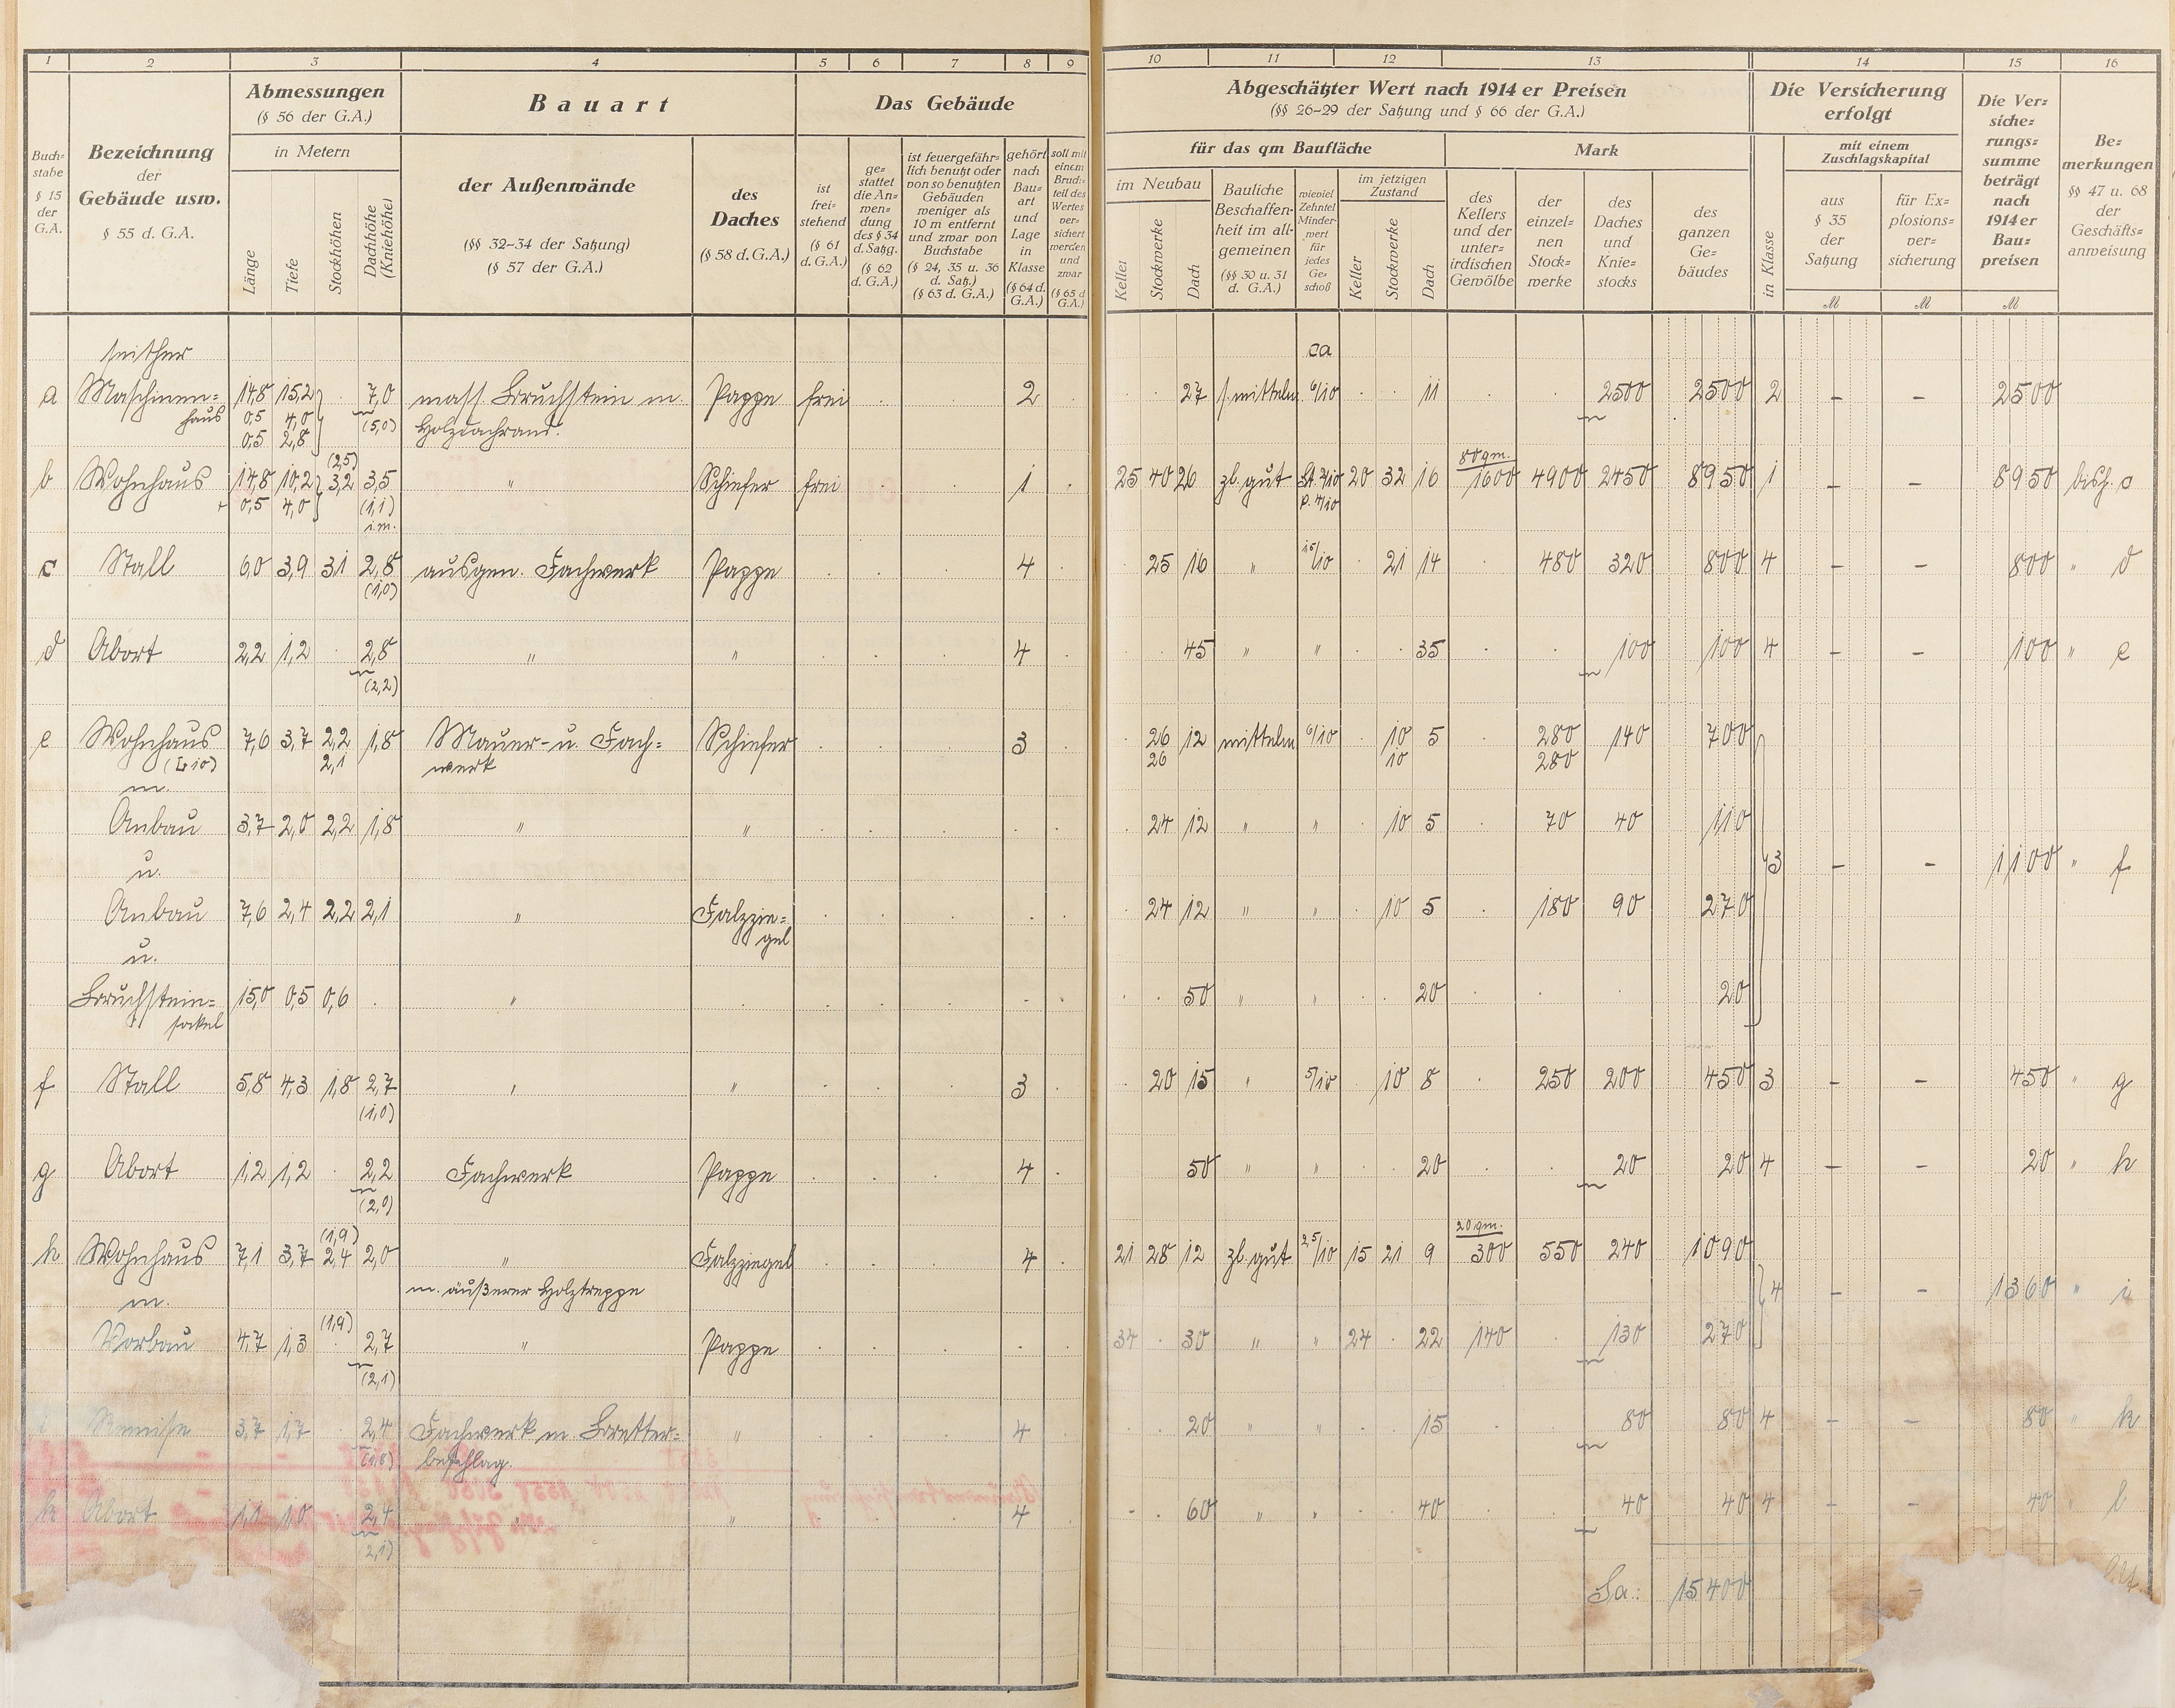 1 2 3 4 5 6 7 8 9 10 11 12 13 14 15 16
Buch=
stabe
§ 15
der
G.A.
Bezeichnung
der
Gebäude usw.
§ 55 d. G.A.
Abmessungen
(§ 56 der G.A.)
in Metern
Länge
Tiefe
Stockhöhen
Dachhöhe
(Kniehöhe)
Bauart
der Außenwände
(§§ 32-34 der Satzung)
(§ 57 der G.A.)
des
Daches
(§ 58 d. G.A.)
Das Gebäude
ist
frei=
stehend
(§ 61
d. G.A.)
ge=
stattet
die An=
wen=
dung
des § 34
d. Satzg.
(§ 62
d. G.A.)
ist feuergefähr=
lich benutzt oder
von so benutzten
Gebäuden
weniger als
10 m entfernt
und zwar von
Buchstabe
(§ 24, 35 u. 36
d. Satz.)
(§ 63 d. G.A.)
gehört
nach
Bau=
art
und
Lage
in
Klasse
(§ 64 d.
G.A.)
soll mit
einem
Bruch=
teil des
Wertes
ver=
sichert
werden
und
zwar
(§ 65 d.
G.A.)
Abgeschätzter Wert nach 1914 er Preisen
(§§ 26-29 der Satzung und § 66 der G.A.)
für das qm Baufläche
im Neubau
Keller
Stockwerke
Dach
Bauliche
Beschaffen=
heit im all=
gemeinen
(§§ 30 u. 31
d. G.A.)
wieviel
Zehntel
Minder=
wert
für
jedes
Ge=
schoß
im jetzigen
Zustand
Keller
Stockwerke
Dach
Mark
des
Kellers
und der
unter=
irdischen
Gewölbe
der
einzel=
nen
Stock=
werke
des
Daches
und
Knie=
stocks
des
ganzen
Ge=
bäudes
Die Versicherung
erfolgt
in Klasse
mit einem
Zuschlagskapital
aus
§ 35
der
Satzung
für Ex=
plosions=
ver=
sicherung
M M
Die Ver=
siche=
rungs=
summe
beträgt
nach
1914 er
Bau=
preisen
M
Be=
merkungen
§§ 47 u. 68
der
Geschäfts=
anweisung
seither ca
a Maschinen= 14,8 15,2 . 7,0 mass. Bruchstein m. Pappe frei . . 2 . . . 27 s. mittelm. 6/10 . . 11 . . 2500 2500 2 – – 2500
haus 0,5 4,0 (5,0) Holzdachrand.
0,5 2,8
(2,5) 80 qm.
b Wohnhaus 14,8 10,2 3,2 3,5 " Schiefer frei . . 1 . 25 40 26 zl. gut St. 2/10 20 32 16 1600 4900 2450 8950 1 – – 8950 bish. c
+ 0,5 4,0 (1,1)
i.m.
c Stall 6,0 3,9 3,1 2,8 ausgem. Fachwerk Pappe . . . 4 . . 25 16 " 1,5/10 . 21 14 . 480 320 800 4 – – 800 " d
(1,0)
d Abort 2,2 1,2 . 2,8 " " . . . 4 . . . 45 " " . . 35 . . 100 100 4 – – 100 " e
(2,2)
e Wohnhaus 7,6 3,7 2,2 1,8 Mauer- u. Fach= Schiefer . . . 3 . . 26 12 mittelm. 6/10 . 10 5 . 280 140 700
2,1 werk 26 10 280
m.
Anbau 3,7 2,0 2,2 1,8 " " . . . . . . 24 12 " " . 10 5 . 70 40 110
u. 3 – – 1100 " f
Anbau 7,6 2,4 2,2 2,1 " Falzzie= . . . . . . 24 12 " " . 10 5 . 180 90 270
gel
u.
Bruchstein= 15,0 0,5 0,6 . " . . . . . . . . 50 " " . . 20 . . . 20
sockel
f Stall 5,8 4,3 1,8 2,7 " " . . . 3 . . 20 15 " 5/10 . 10 8 . 250 200 450 3 – – 450 " g
(1,0)
g Abort 1,2 1,2 . 2,2 Fachwerk Pappe . . . 4 . . . 50 " " . . 20 . . 20 20 4 – – 20 " h
(2,0)
(1,9) 20 qm.
h Wohnhaus 7,1 3,7 2,4 2,0 " Falzziegel . . . 4 . 21 28 12 zl. gut 2,5/10 15 21 9 300 550 240 1090
m. m. äußerer Holztreppe 4 – – 1360 " i
(1,9)
Vorbau 4,7 1,3 . 2,7 " Pappe . . . . . 34 . 30 " " 24 . 22 140 . 130 270
(2,1)
i Remise 3,7 1,7 . 2,4 Fachwerk m. Bretter= " . . . 4 . . . 20 " " . . 15 . . 80 80 4 – – 80 " k
(1,8) beschlag.
k Abort 1,1 1,0 . 2,4 " " . . . 4 . . . 60 " " . . 40 . . 40 40 4 – – 40 " l
(2,1)
Sa.: 15400